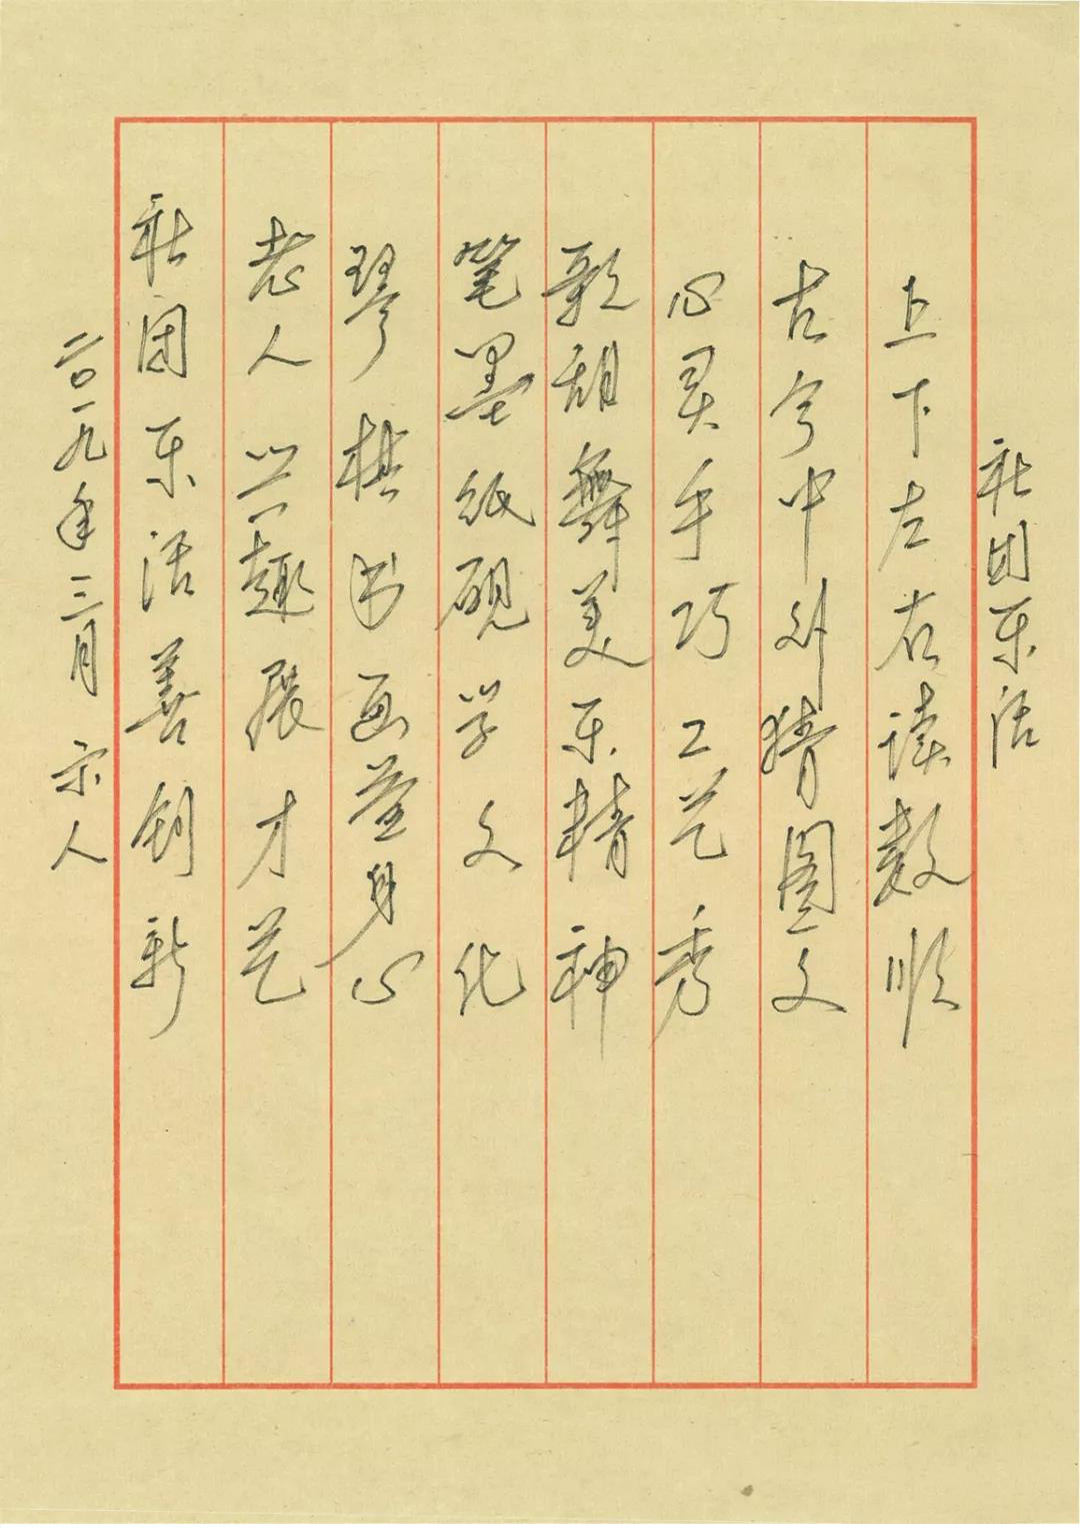 社团乐活
上下左右读数顺
古今中外猜图文
心灵手巧工艺秀
歌甜舞美乐精神
笔墨纸砚学文化
琴棋书画益身心
老人兴趣展才艺
社团乐活善创新
二〇一九年三月 宗人